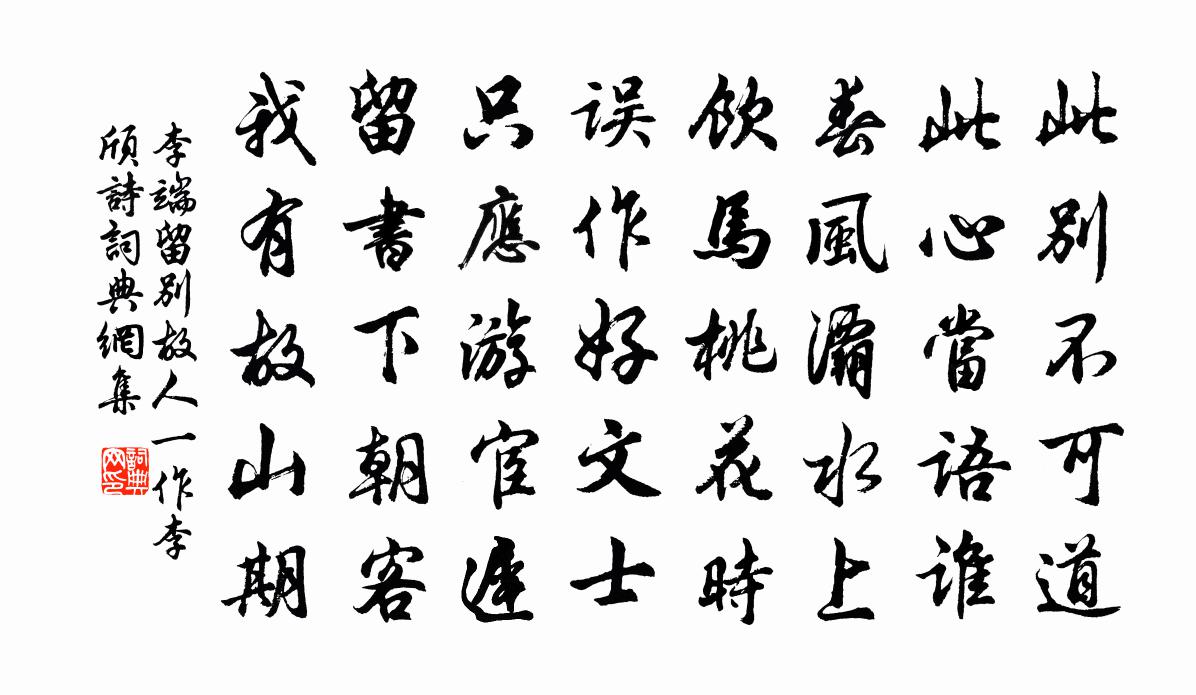 此別不可道
此心當語誰
春風灞水上
飲馬桃花時
误作好文士
只應游宦遲
留書下朝客
我有故山期
李端留別故人一作李
頎詩詞典網集
詞典网印